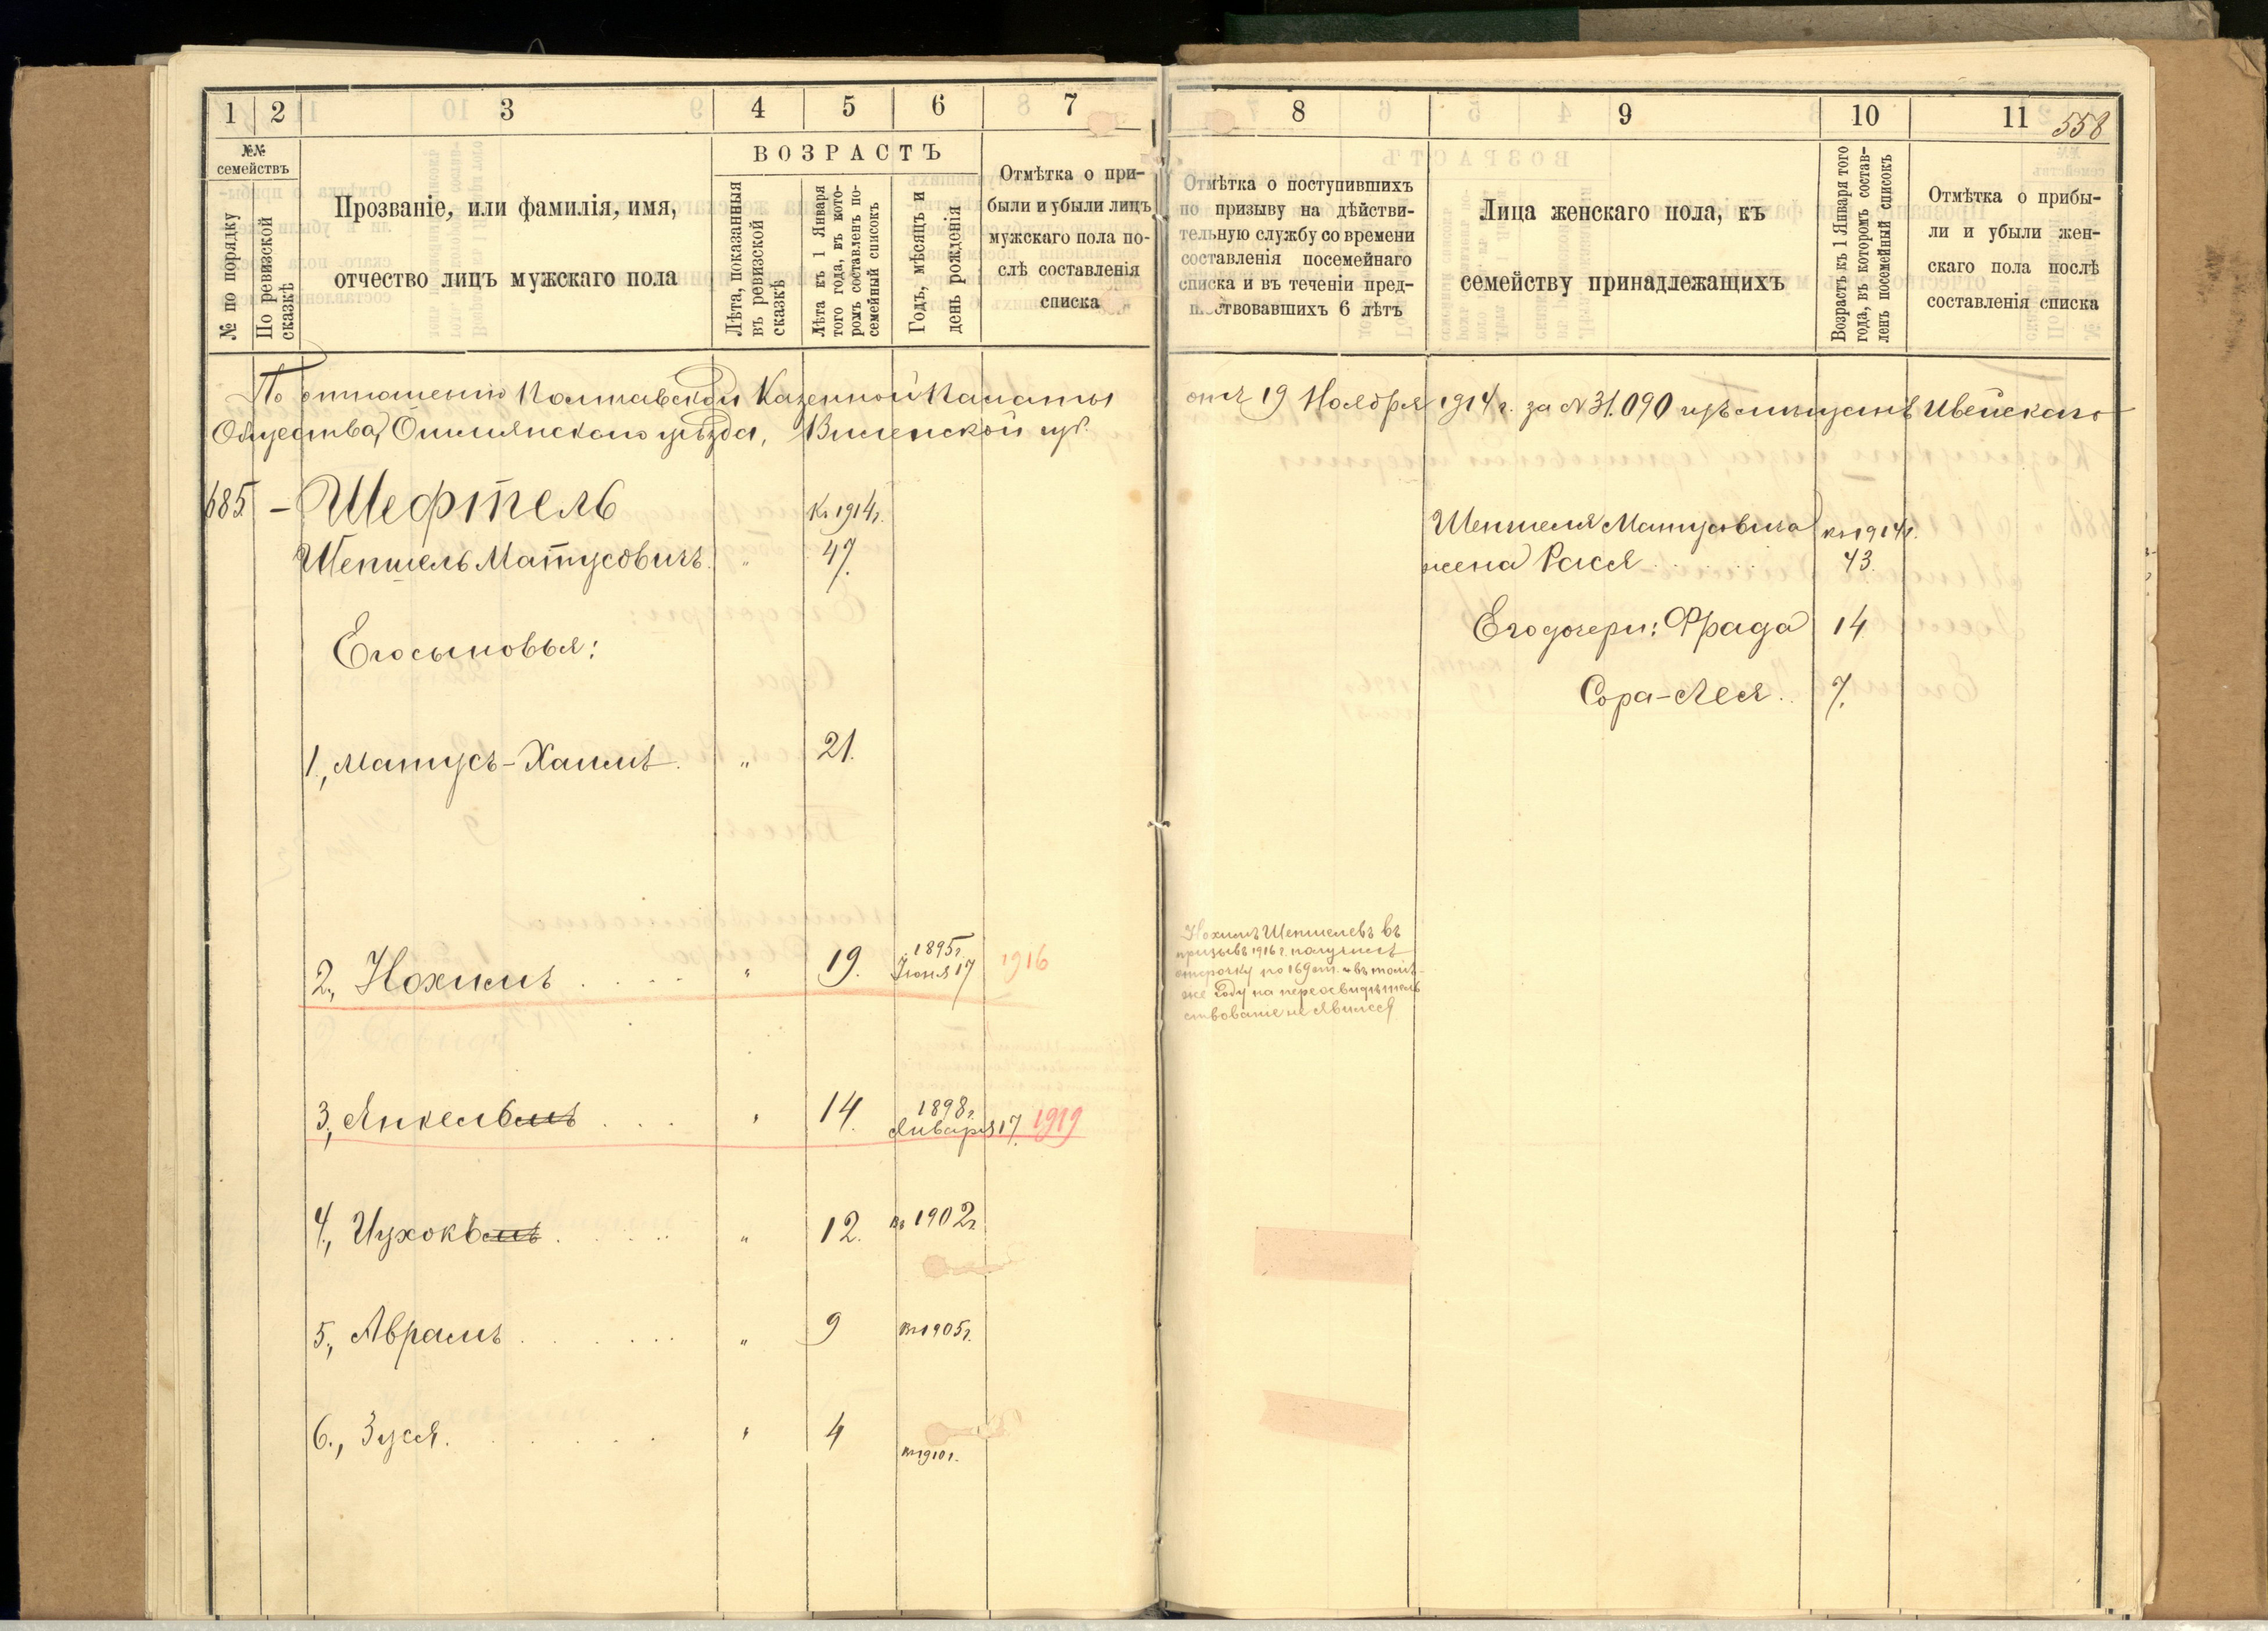 1 2 3 4 5 6 7
№№ семействъ
№ по порядку
По ревизской сказкѣ
Прозваніе, или фамилія, имя,
отчество лицъ мужскаго пола
ВОЗРАСТЪ
Лѣта, показанныя
въ ревизской
сказкѣ
Лѣта къ 1 Января
того года, въ кото-
ромъ составленъ по-
семейный списокъ
Годъ, мѣсяцъ и
день рожденія
Отмѣтка о при-
были и убыли лицъ
мужскаго пола по-
слѣ составленія
списка
8 9 10 11
558
Отмѣтка о поступившихъ
по призыву на дѣйстви-
тельную службу со времени
составленія посемейнаго
списка и въ теченіи пред-
шествовавшихъ 6 лѣтъ
Лица женскаго пола, къ
семейству принадлежащихъ
Возрастъ къ 1 Января того
года, въ которомъ состав-
ленъ посемейный списокъ
Отмѣтка о прибы-
ли и убыли жен-
скаго пола послѣ
составленія списка
По отношенію Полтавской Казенной Палаты отъ 19 Ноября 1914 г. за № 31.090 изъ мѣщанъ Ивейскаго
Общества, Ошмянскаго уѣзда, Виленской губ.
685 – Шефтель Къ 1914 г.
Шепшель Матусовичъ. " 47.
Его сыновья:
1., Матусъ-Хаимъ. " 21.
2., Нохимъ " 19. 1895 г. Іюня 17 1916
3., Янкельмъ " 14. 1898 г. Января 17. 1919
4., Ицхокъмъ " 12. въ 1902 г.
5., Абрамъ " 9 въ 1905 г.
6., Зуся. " 4 въ 1910 г.
Шепшеля Матусовича къ 1914 г.
жена Рася 43.
Его дочери: Фрада 14.
Сора-Лея. 7.
Нохимъ Шепшелевъ въ
призывъ 1916 г. получилъ
отсрочку по 169 ст. и въ томъ-
же году на переосвидѣтель
ствованіе не явился